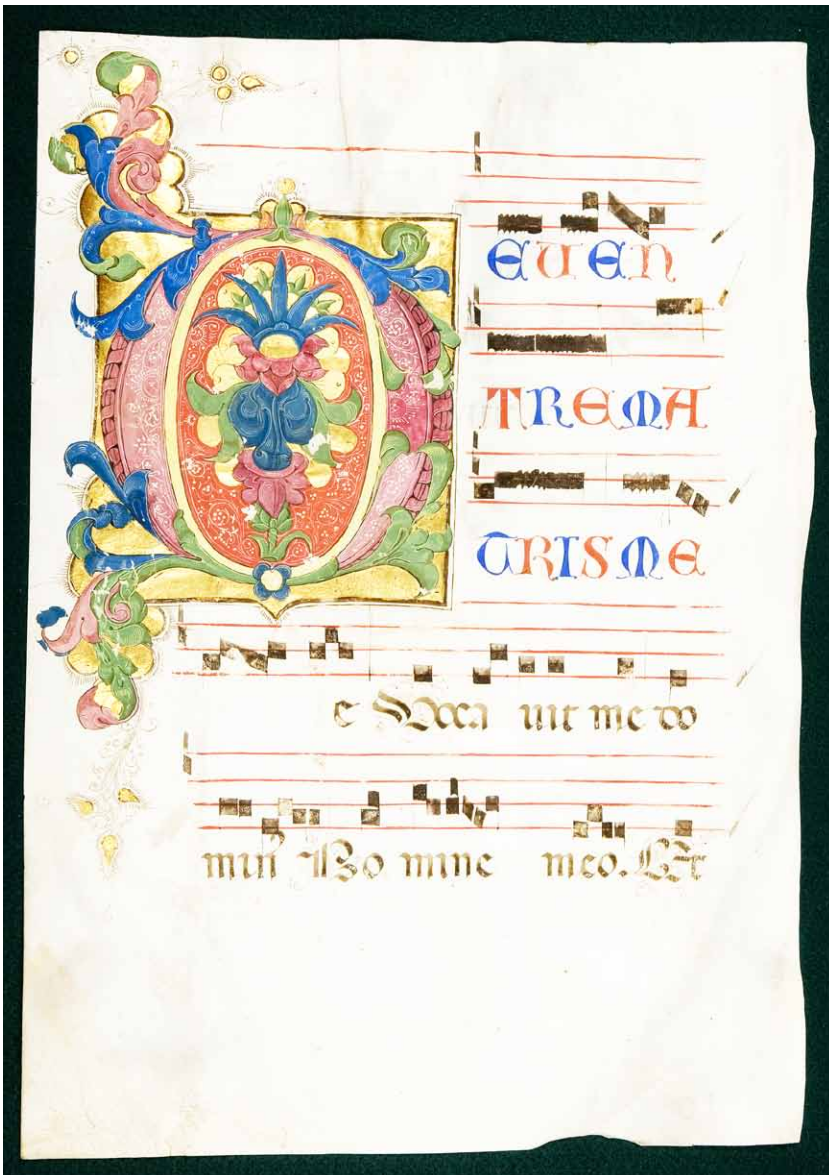 DEUEN
TREMA
TRISME
e Voca uit me do
min⁹ No mine meo. Et